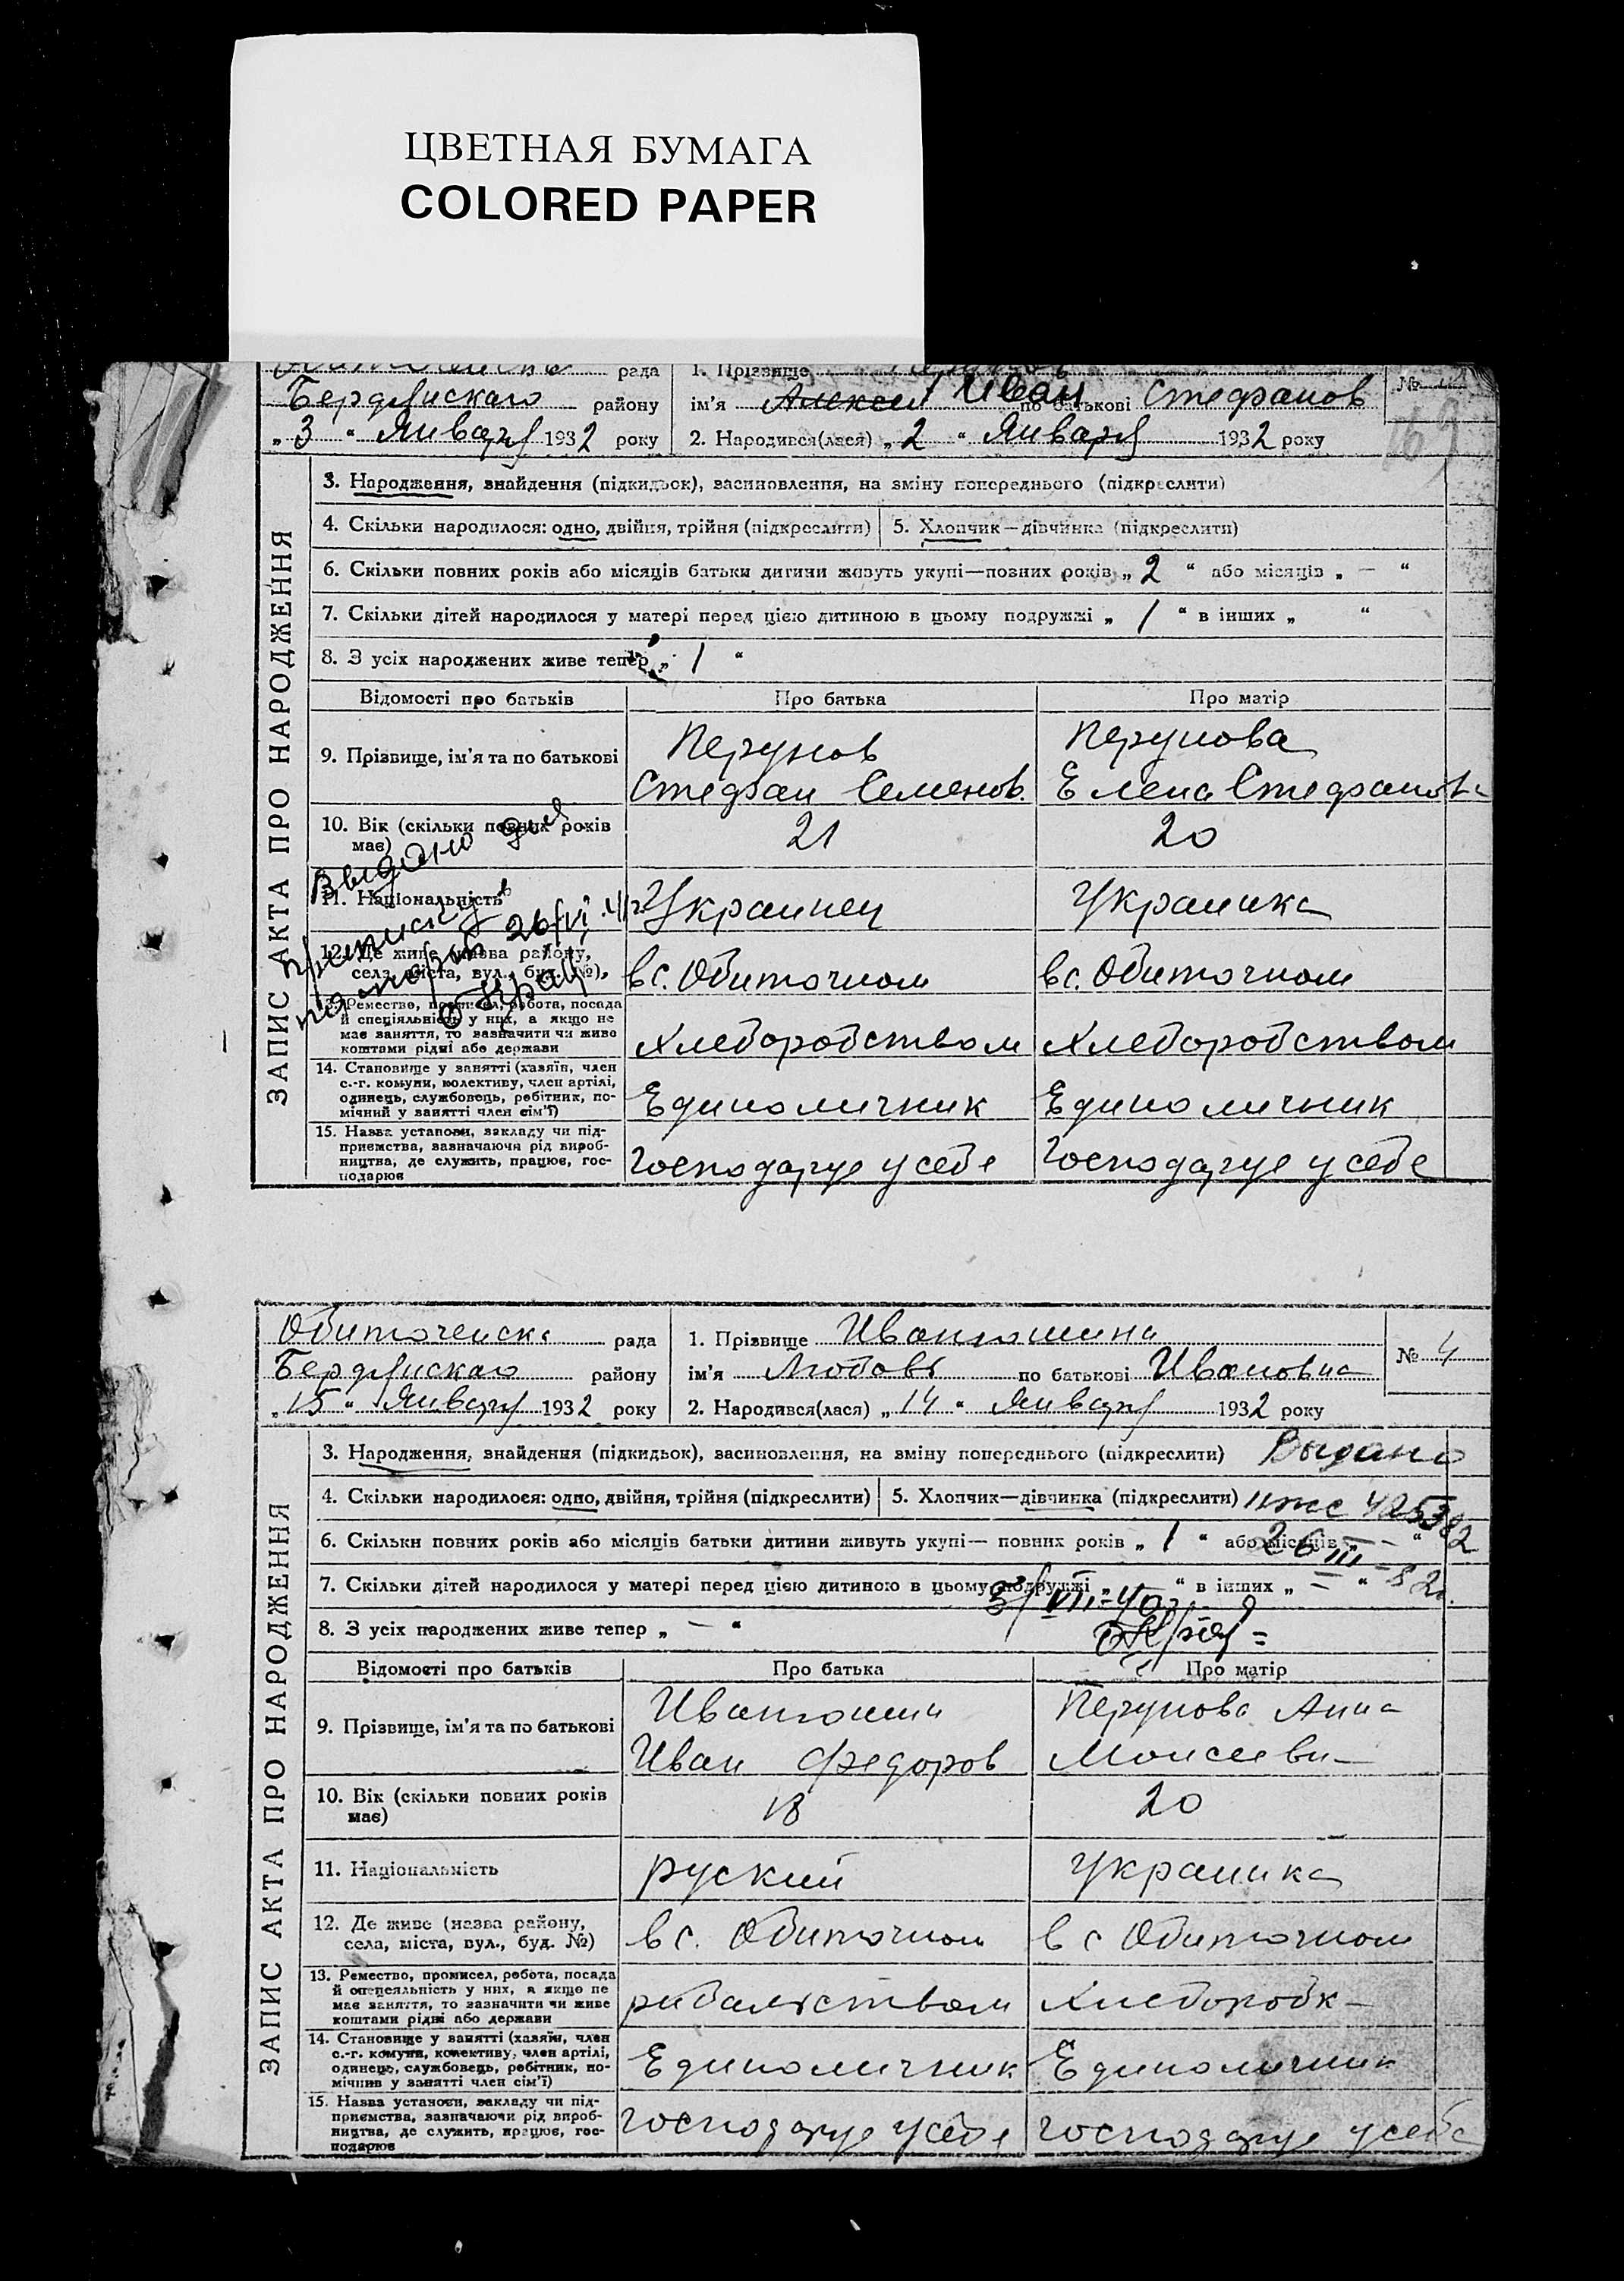 ЦВЕТНАЯ БУМАГА
COLORED PAPER
рада 1. Прізвище №
Бердянскаго району ім'я Алексей Иван по батькові Стефанов
„3“ Января 1932 року 2. Народився(лася) „2“ Января 1932 року
169
ЗАПИС АКТА ПРО НАРОДЖЕННЯ
3. Народження, знайдення (підкидьок), засиновлення, на зміну попереднього (підкреслити)
4. Скільки народилося: одно, двійня, трійня (підкреслити) 5. Хлопчик—дівчинка (підкреслити)
6. Скільки повних років або місяців батьки дитини живуть укупі—повних років „2“ або місяців „—“
7. Скільки дітей народилося у матері перед цією дитиною в цьому подружжі „1“ в інших „ “
8. З усіх народжених живе тепер „1“
Відомості про батьків Про батька Про матір
9. Прізвище, ім'я та по батькові Перунов Перунова
Стефан Семенов. Елена Стефановна
10. Вік (скільки повних років має) 21 20
11. Національність Украинец Украинка
12. Де живе (назва району, села, міста, вул., буд. №) в с. Обиточном в с. Обиточном
13. Ремество, промисел, робота, посада
й спеціяльність у них, а якщо не
має заняття, то зазначити чи живе
коштами рідні або держави Хлеборобством Хлеборобством
14. Становище у занятті (хазяїн, член
с.-г. комуни, колективу, член артілі,
одинець, службовець, робітник, по-
мічний у занятті член сім'ї) Единоличник Единоличник
15. Назва установи, закладу чи під-
приємства, зазначаючи рід вироб-
ництва, де служить, працює, гос-
подарює Господарує у себе Господарує у себе
Выдано для
прописки
паспорта 26/VI
Обиточенска рада 1. Прізвище Иванюшина № 4
Бердянскаго району ім'я Любовь по батькові Ивановна
„15“ Января 1932 року 2. Народився(лася) „14“ Января 1932 року
ЗАПИС АКТА ПРО НАРОДЖЕННЯ
3. Народження, знайдення (підкидьок), засиновлення, на зміну попереднього (підкреслити) Выдано
4. Скільки народилося: одно, двійня, трійня (підкреслити) 5. Хлопчик—дівчинка (підкреслити) 425382
6. Скільки повних років або місяців батьки дитини живуть укупі— повних років „1“ або місяців „—“
26 III
7. Скільки дітей народилося у матері перед цією дитиною в цьому подружжі „ “ в інших „—“
8. З усіх народжених живе тепер „—“
Відомості про батьків Про батька Про матір
9. Прізвище, ім'я та по батькові Иванюшин Перунова Анна
Иван Федоров Моисеевн
10. Вік (скільки повних років має) 18 20
11. Національність руский украинка
12. Де живе (назва району, села, міста, вул., буд. №) в с. Обиточном в с Обиточном
13. Ремество, промисел, робота, посада
й спеціяльність у них, а якщо не
має заняття, то зазначити чи живе
коштами рідні або держави рибальством Хлеборобк
14. Становище у занятті (хазяїн, член
с.-г. комуни, колективу, член артілі,
одинець, службовець, робітник, по-
мічний у занятті член сім'ї) Единоличник Единоличник
15. Назва установи, закладу чи під-
приємства, зазначаючи рід вироб-
ництва, де служить, працює, гос-
подарює Господарує у себе Господарує у себе